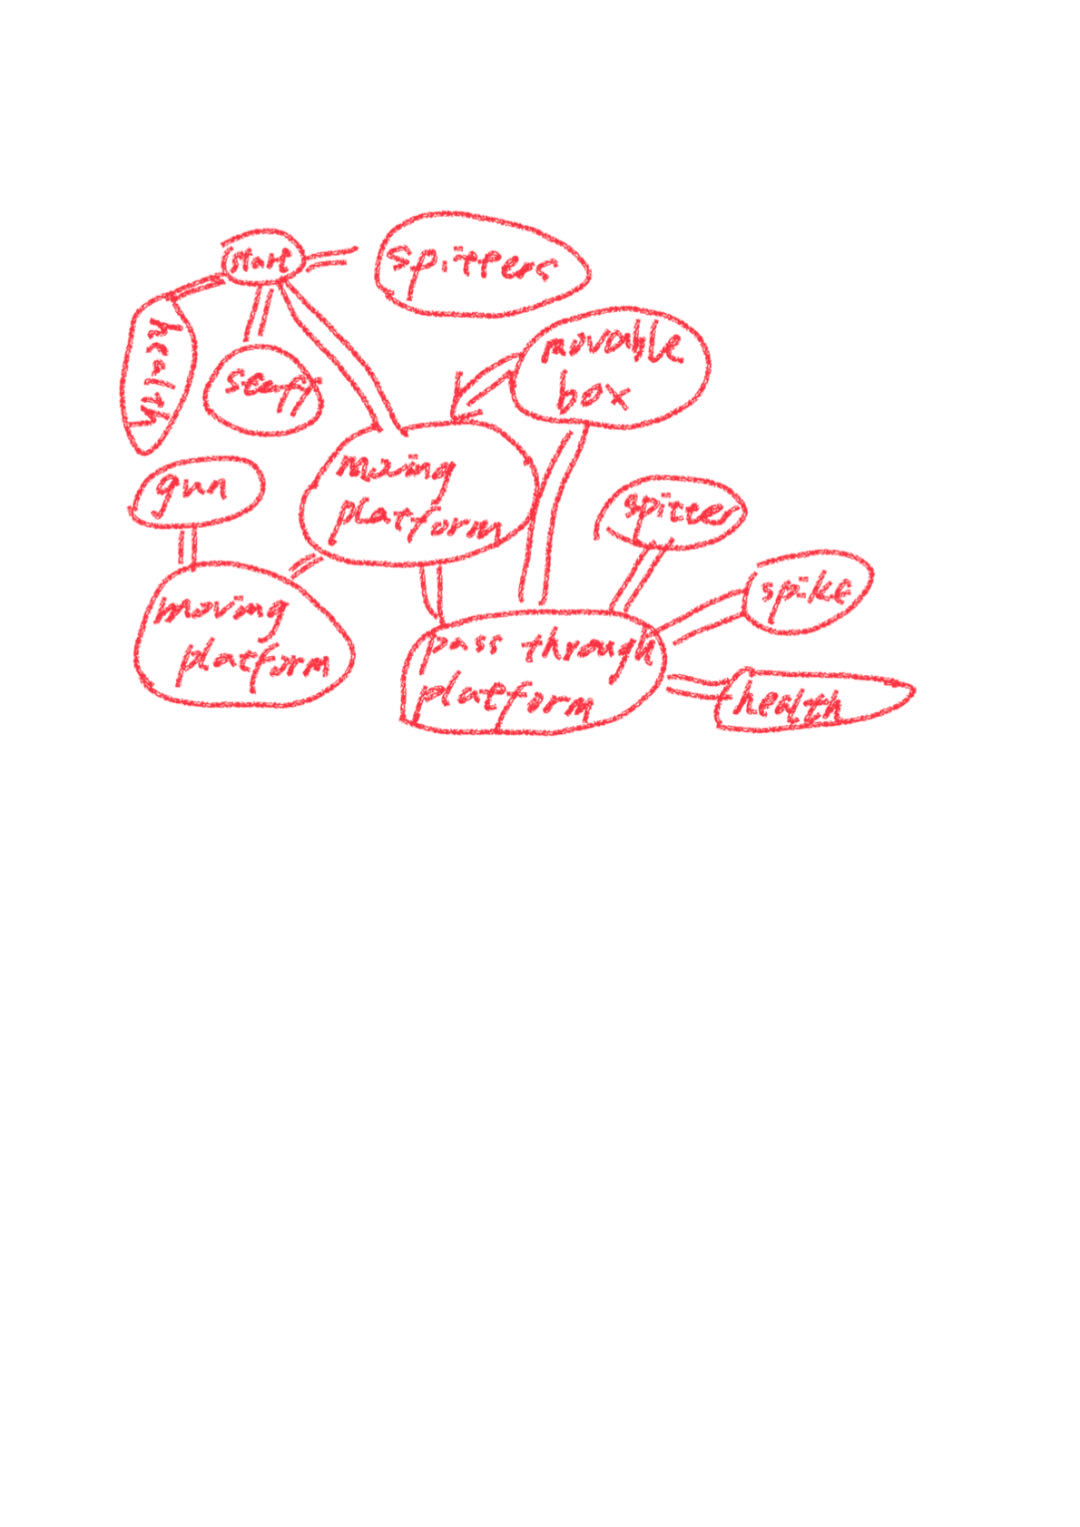 start
spitters
health
staff
movable
box
moving
platform
gun
spitter
spike
moving
platform
pass through
platform
health